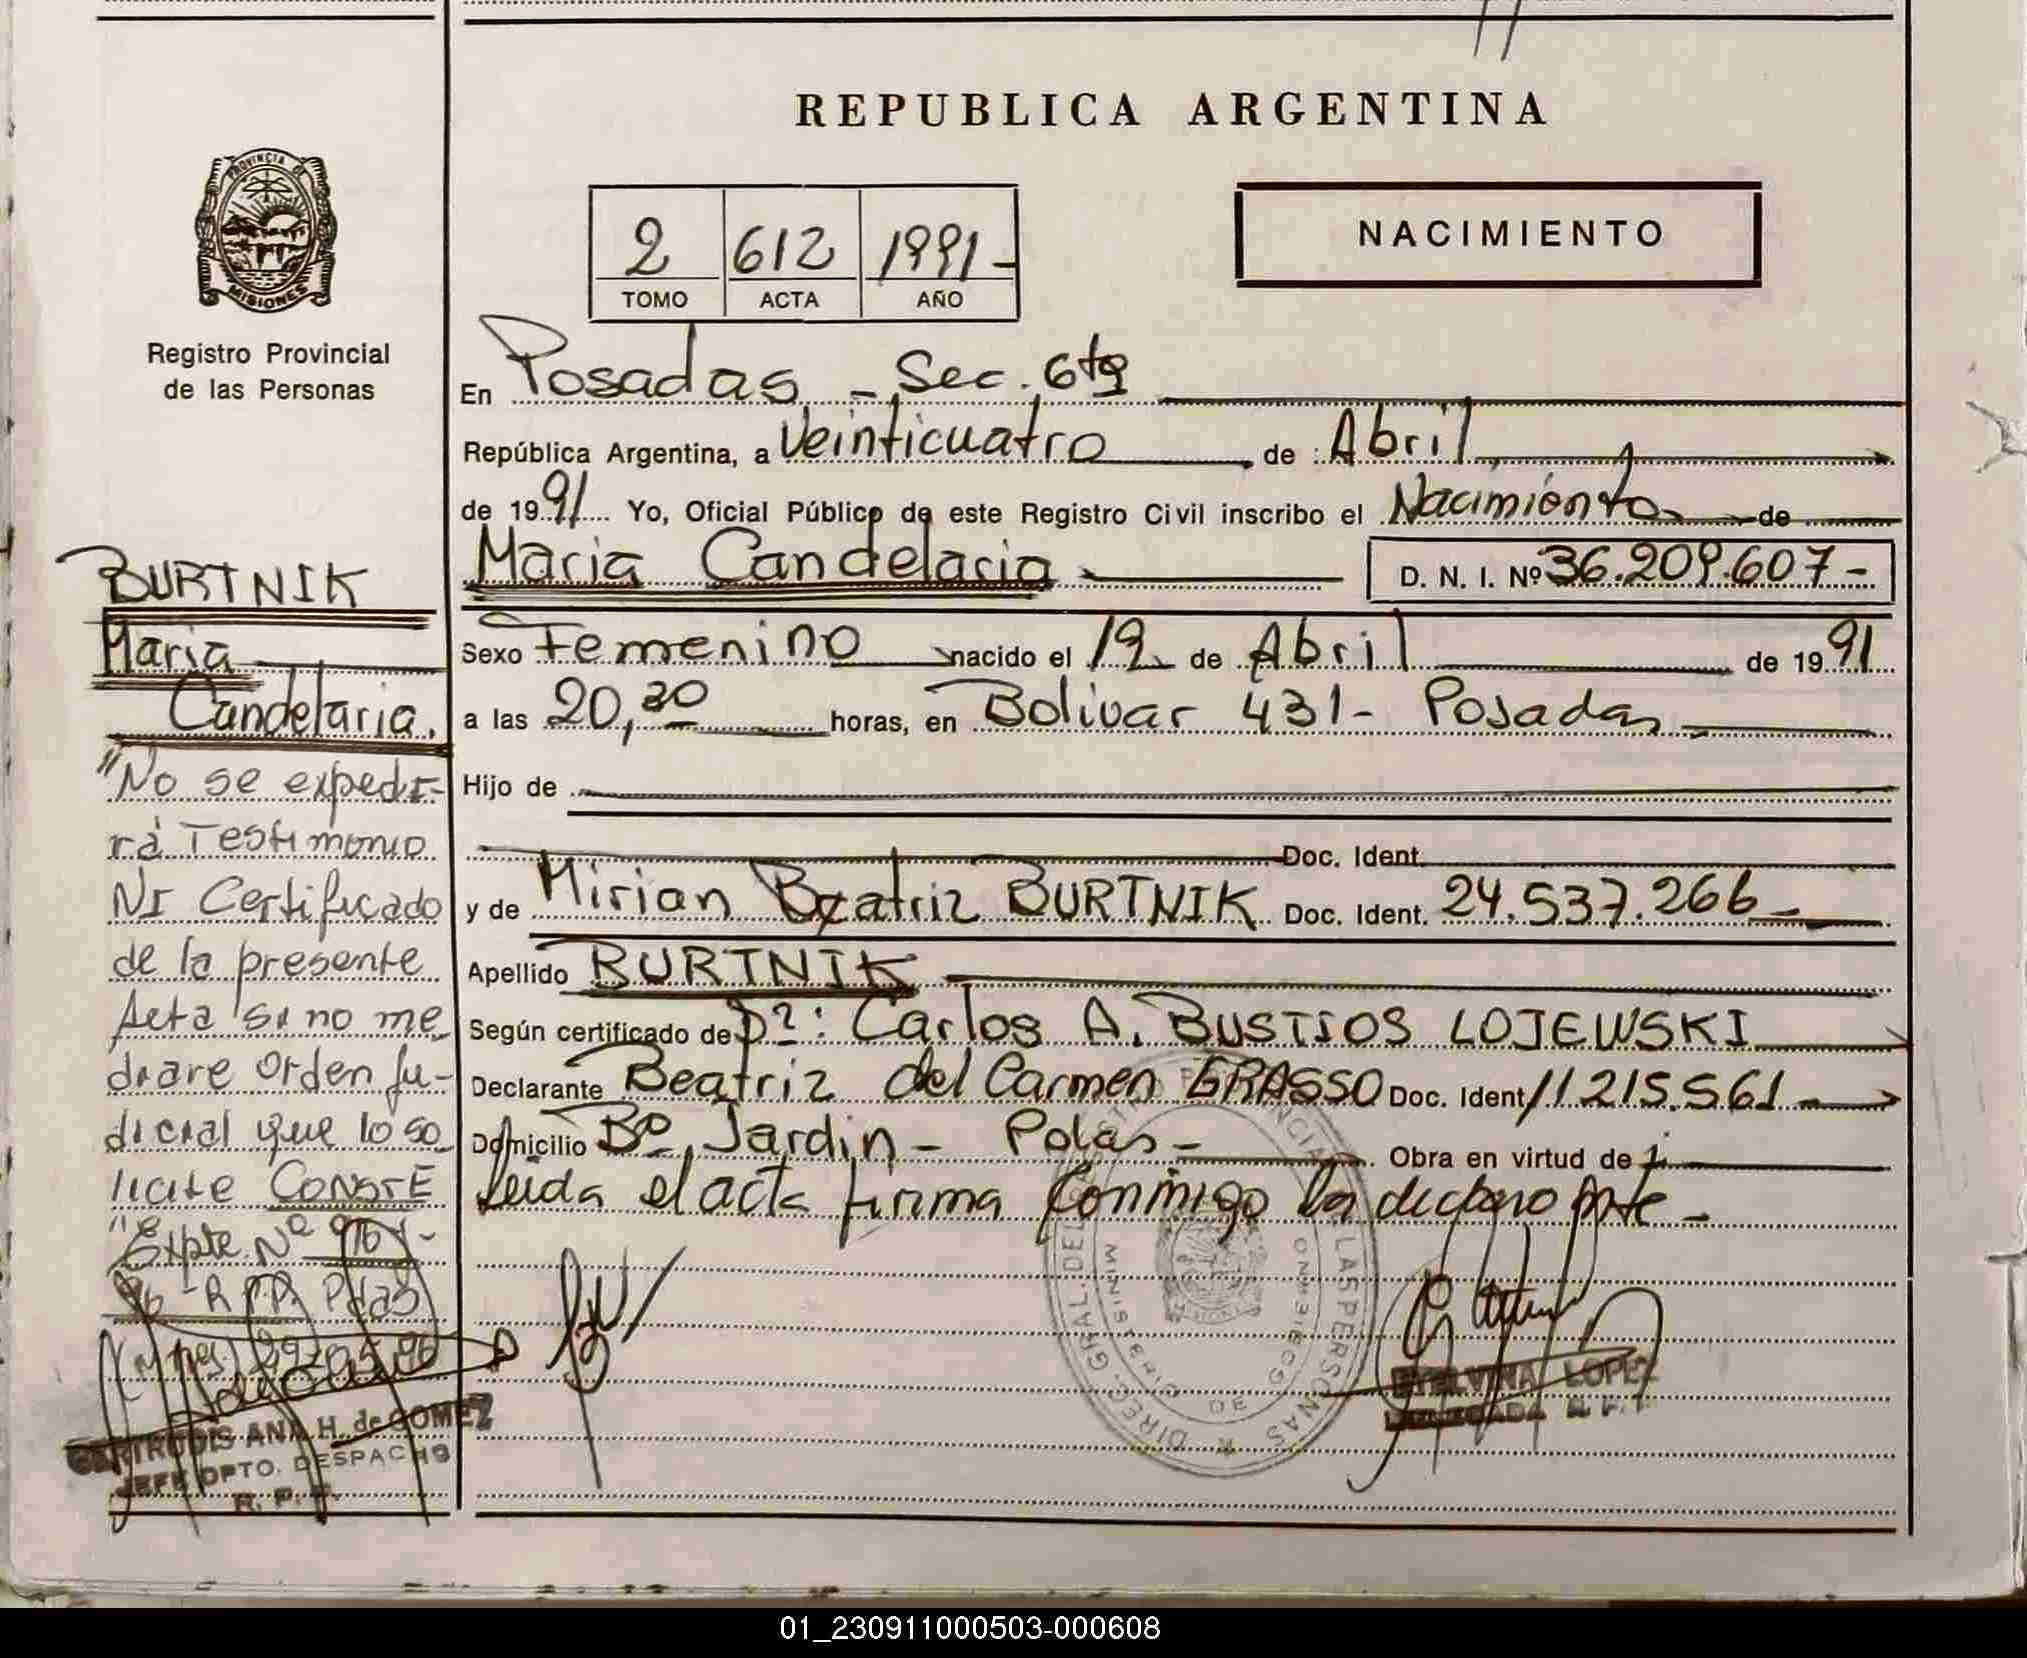 REPUBLICA ARGENTINA
PROVINCIA DE
MISIONES
Registro Provincial
de las Personas
2 612 1991-
TOMO ACTA AÑO
NACIMIENTO
En Posadas - Sec. 6ta
República Argentina, a Veinticuatro de Abril
de 1991 Yo, Oficial Público de este Registro Civil inscribo el Nacimiento de
Maria Candelaria D. N. I. Nº 36.209.607-
Sexo Femenino nacido el 19 de Abril de 1991
a las 20,30 horas, en Bolivar 431- Posadas
Hijo de
Doc. Ident.
y de Mirian Beatriz BURTNIK Doc. Ident. 24.537.266-
Apellido BURTNIK
Según certificado de Dº: Carlos A. BUSTIOS LOJEWSKI
Declarante Beatriz del Carmen GRASSO Doc. Ident 11215.561
Domicilio Bº Jardin - Pdas - Obra en virtud de
Leida el acta firma conmigo la declarante -
BURTNIK
Maria
Candelaria.
"No se expedi-
rá Testimonio
Ni Certificado
de la presente
Acta si no me
diare orden Ju-
dicial que lo so
licite CONSTE
"Expte. Nº
96 - R.P.P. Pdas
GERTRUDIS ANA H. de GOMEZ
JEFE DPTO. DESPACHO
R. P. P.
ETELVINA LOPEZ
DIREC. GRAL. DEL LAS PERSONAS
MINISTERIO DE GOBIERNO
01_230911000503-000608